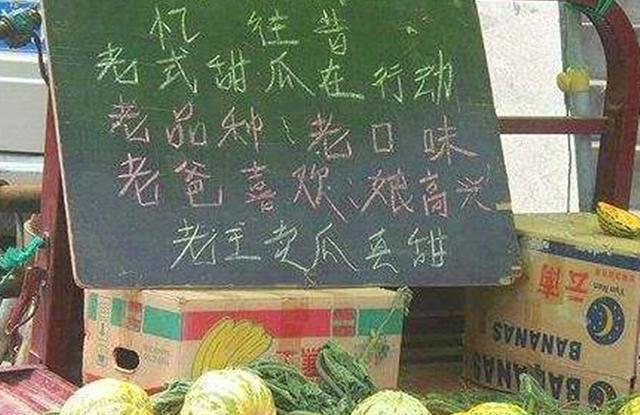 忆 往昔
老式甜瓜在行动
老品种、老口味
老爸喜欢、娘高兴
老王卖瓜真甜
云南
Yun Nan
BANANAS
BANANAS